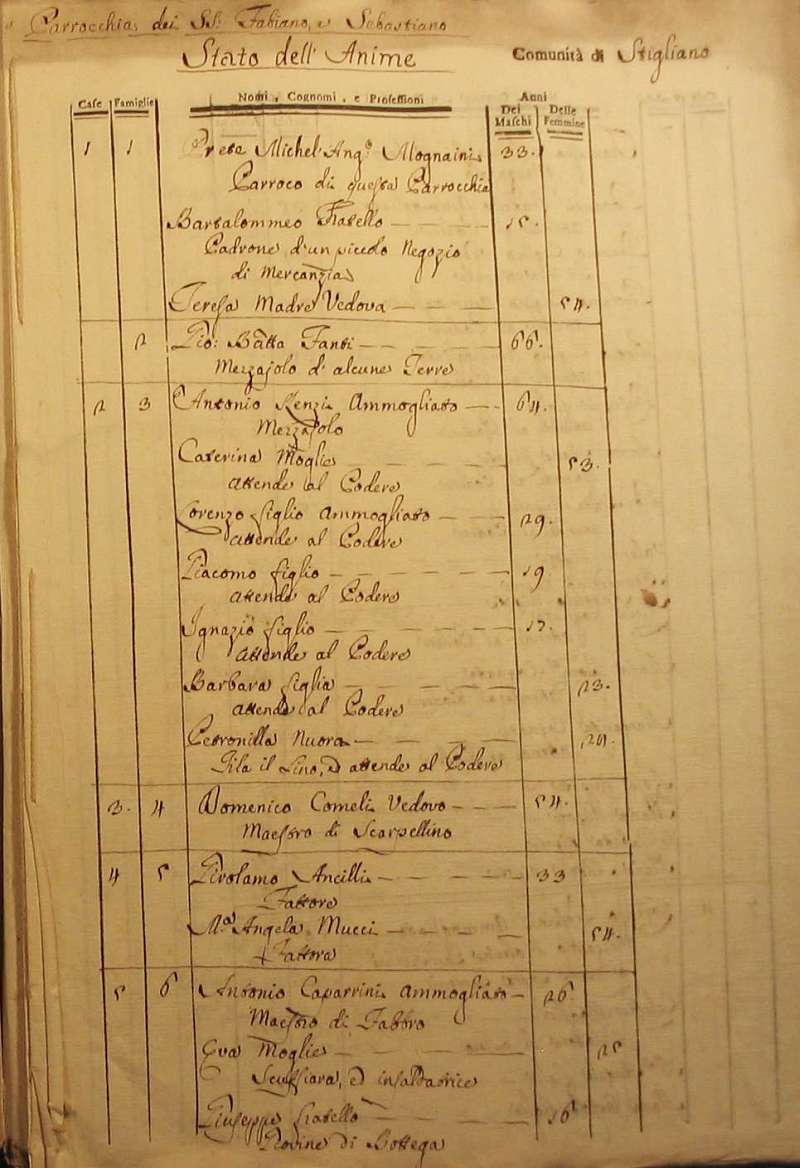 Parrocchia dei SS: Fabiano, e Sebastiano
Stato dell' Anime Comunità di Stigliano
Case Famiglie Nomi, Cognomi, e Professioni Anni Dei Maschi Delle Femmine
1 1 Prete Michel' Ang.º Mognaini 33.
Parroco di questa Parrocchia
Bartalommeo Fratello 15.
Padrone d'un piccolo Negozio
di Mercanzia
Teresa Madre Vedova 54.
2 Gio: Batta Fanti 66.
Mezzajolo d' alcune Terre
2 3 Antonio Renzi Ammogliato 64.
Mezzajolo
Caterina Moglie 53.
attende al Podere
Lorenzo figlio Ammogliato 29.
attende al Podere
Giacomo figlio 19
attende al Podere
Ignazio figlio 17.
attende al Podere
Barbara figlia 23.
attende al Podere
Petronilla Nuora
Fila il Lino, ed attende al Podere
3. 4 Domenico Comeli Vedovo 54.
Maestro di Scarpellino
4 5 Girolamo Ancilli 33
Fattore
M.ª Angela Mucci 54.
Fattora
5 6 Antonio Caparrini Ammogliato 26
Maestro di Fabbro
Eva Moglie 25
Scuffiara, ed insaldatrice
Giuseppe fratello 16
Giovine di Bottega